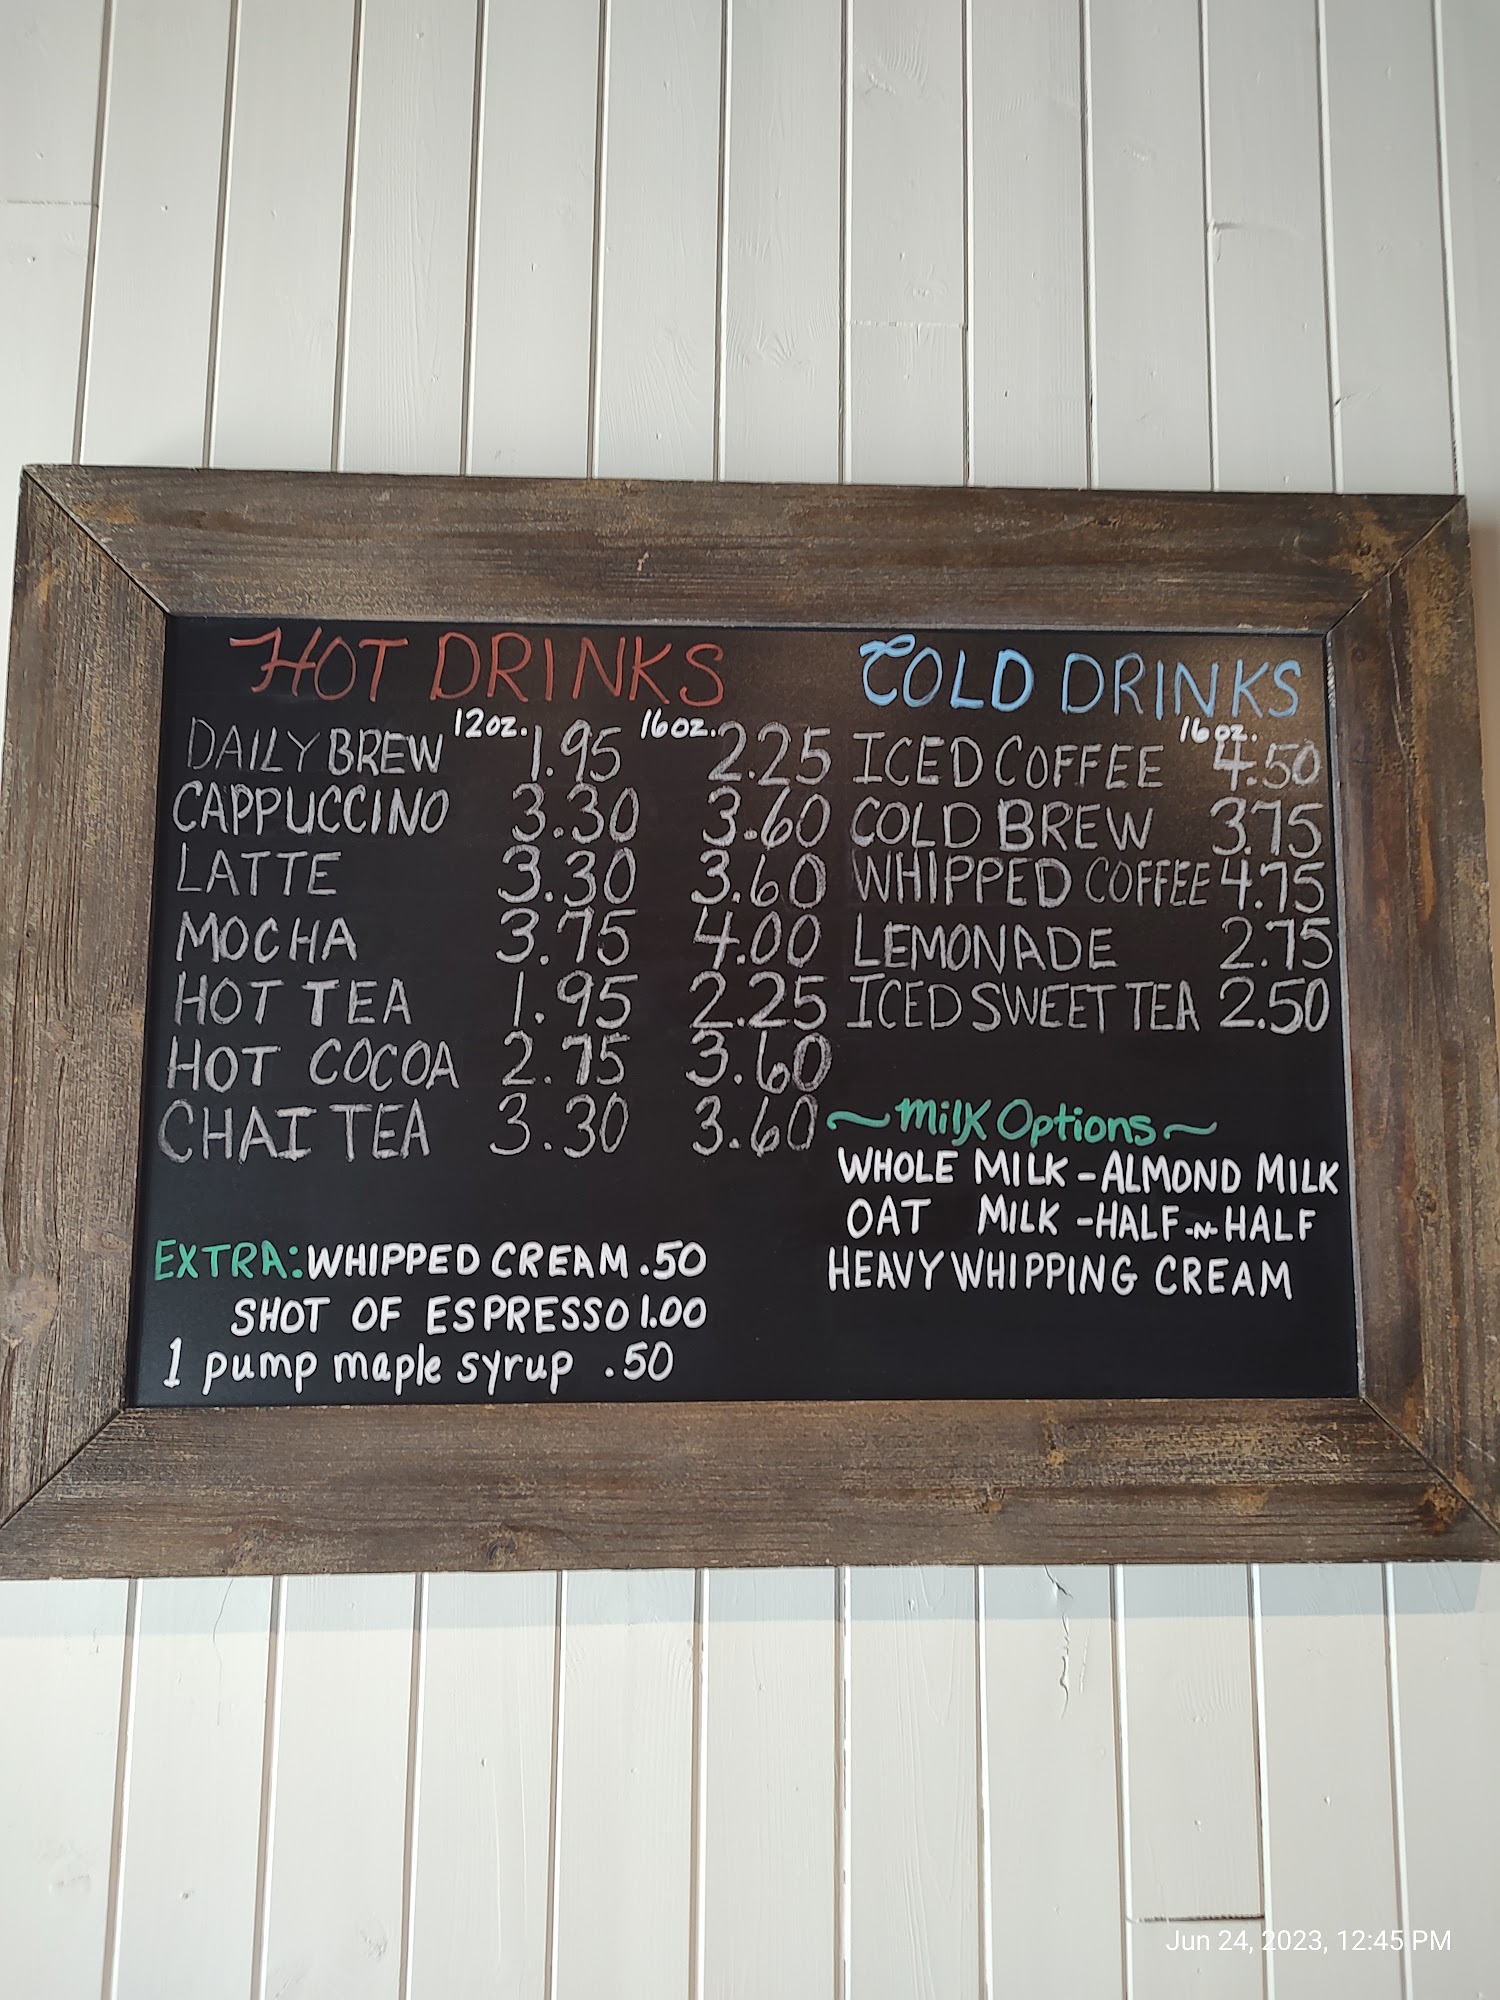 HOT DRINKS
12oz. 16oz.
DAILY BREW 1.95 2.25
CAPPUCCINO 3.30 3.60
LATTE 3.30 3.60
MOCHA 3.75 4.00
HOT TEA 1.95 2.25
HOT COCOA 2.75 3.60
CHAI TEA 3.30 3.60
EXTRA: WHIPPED CREAM .50
SHOT OF ESPRESSO 1.00
1 pump maple syrup .50
COLD DRINKS
16oz.
ICED COFFEE 4.50
COLD BREW 3.75
WHIPPED COFFEE 4.75
LEMONADE 2.75
ICED SWEET TEA 2.50
~Milk Options~
WHOLE MILK - ALMOND MILK
OAT MILK - HALF-N-HALF
HEAVY WHIPPING CREAM
Jun 24, 2023, 12:45 PM